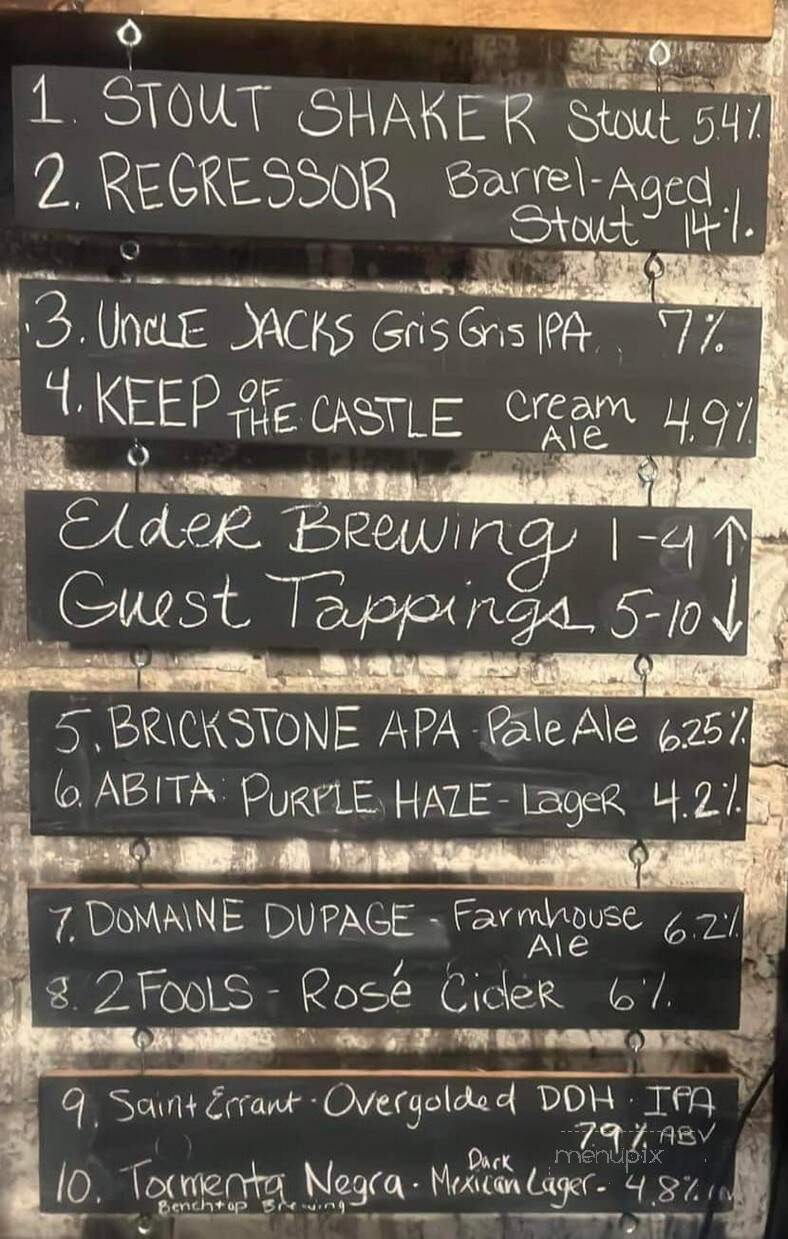 1. STOUT SHAKER Stout 5.4%
2. REGRESSOR Barrel-Aged
Stout 14%.
3. UncLE JACKS Gris Gris IPA 7%
4. KEEP OF THE CASTLE Cream Ale 4.9%
Elder Brewing 1-4 ↑
Guest Tappings 5-10 ↓
5. BRICKSTONE APA - Pale Ale 6.25%
6. ABITA: PURPLE HAZE - Lager 4.2%
7. DOMAINE DUPAGE - Farmhouse Ale 6.2%
8. 2 FOOLS - Rosé Cider 6%
9. Saint Errant - Overgolded DDH - IPA
7.9% ABV
menupix
10. Tormenta Negra - Dark Mexican Lager - 4.8%
Benchtop Brewing